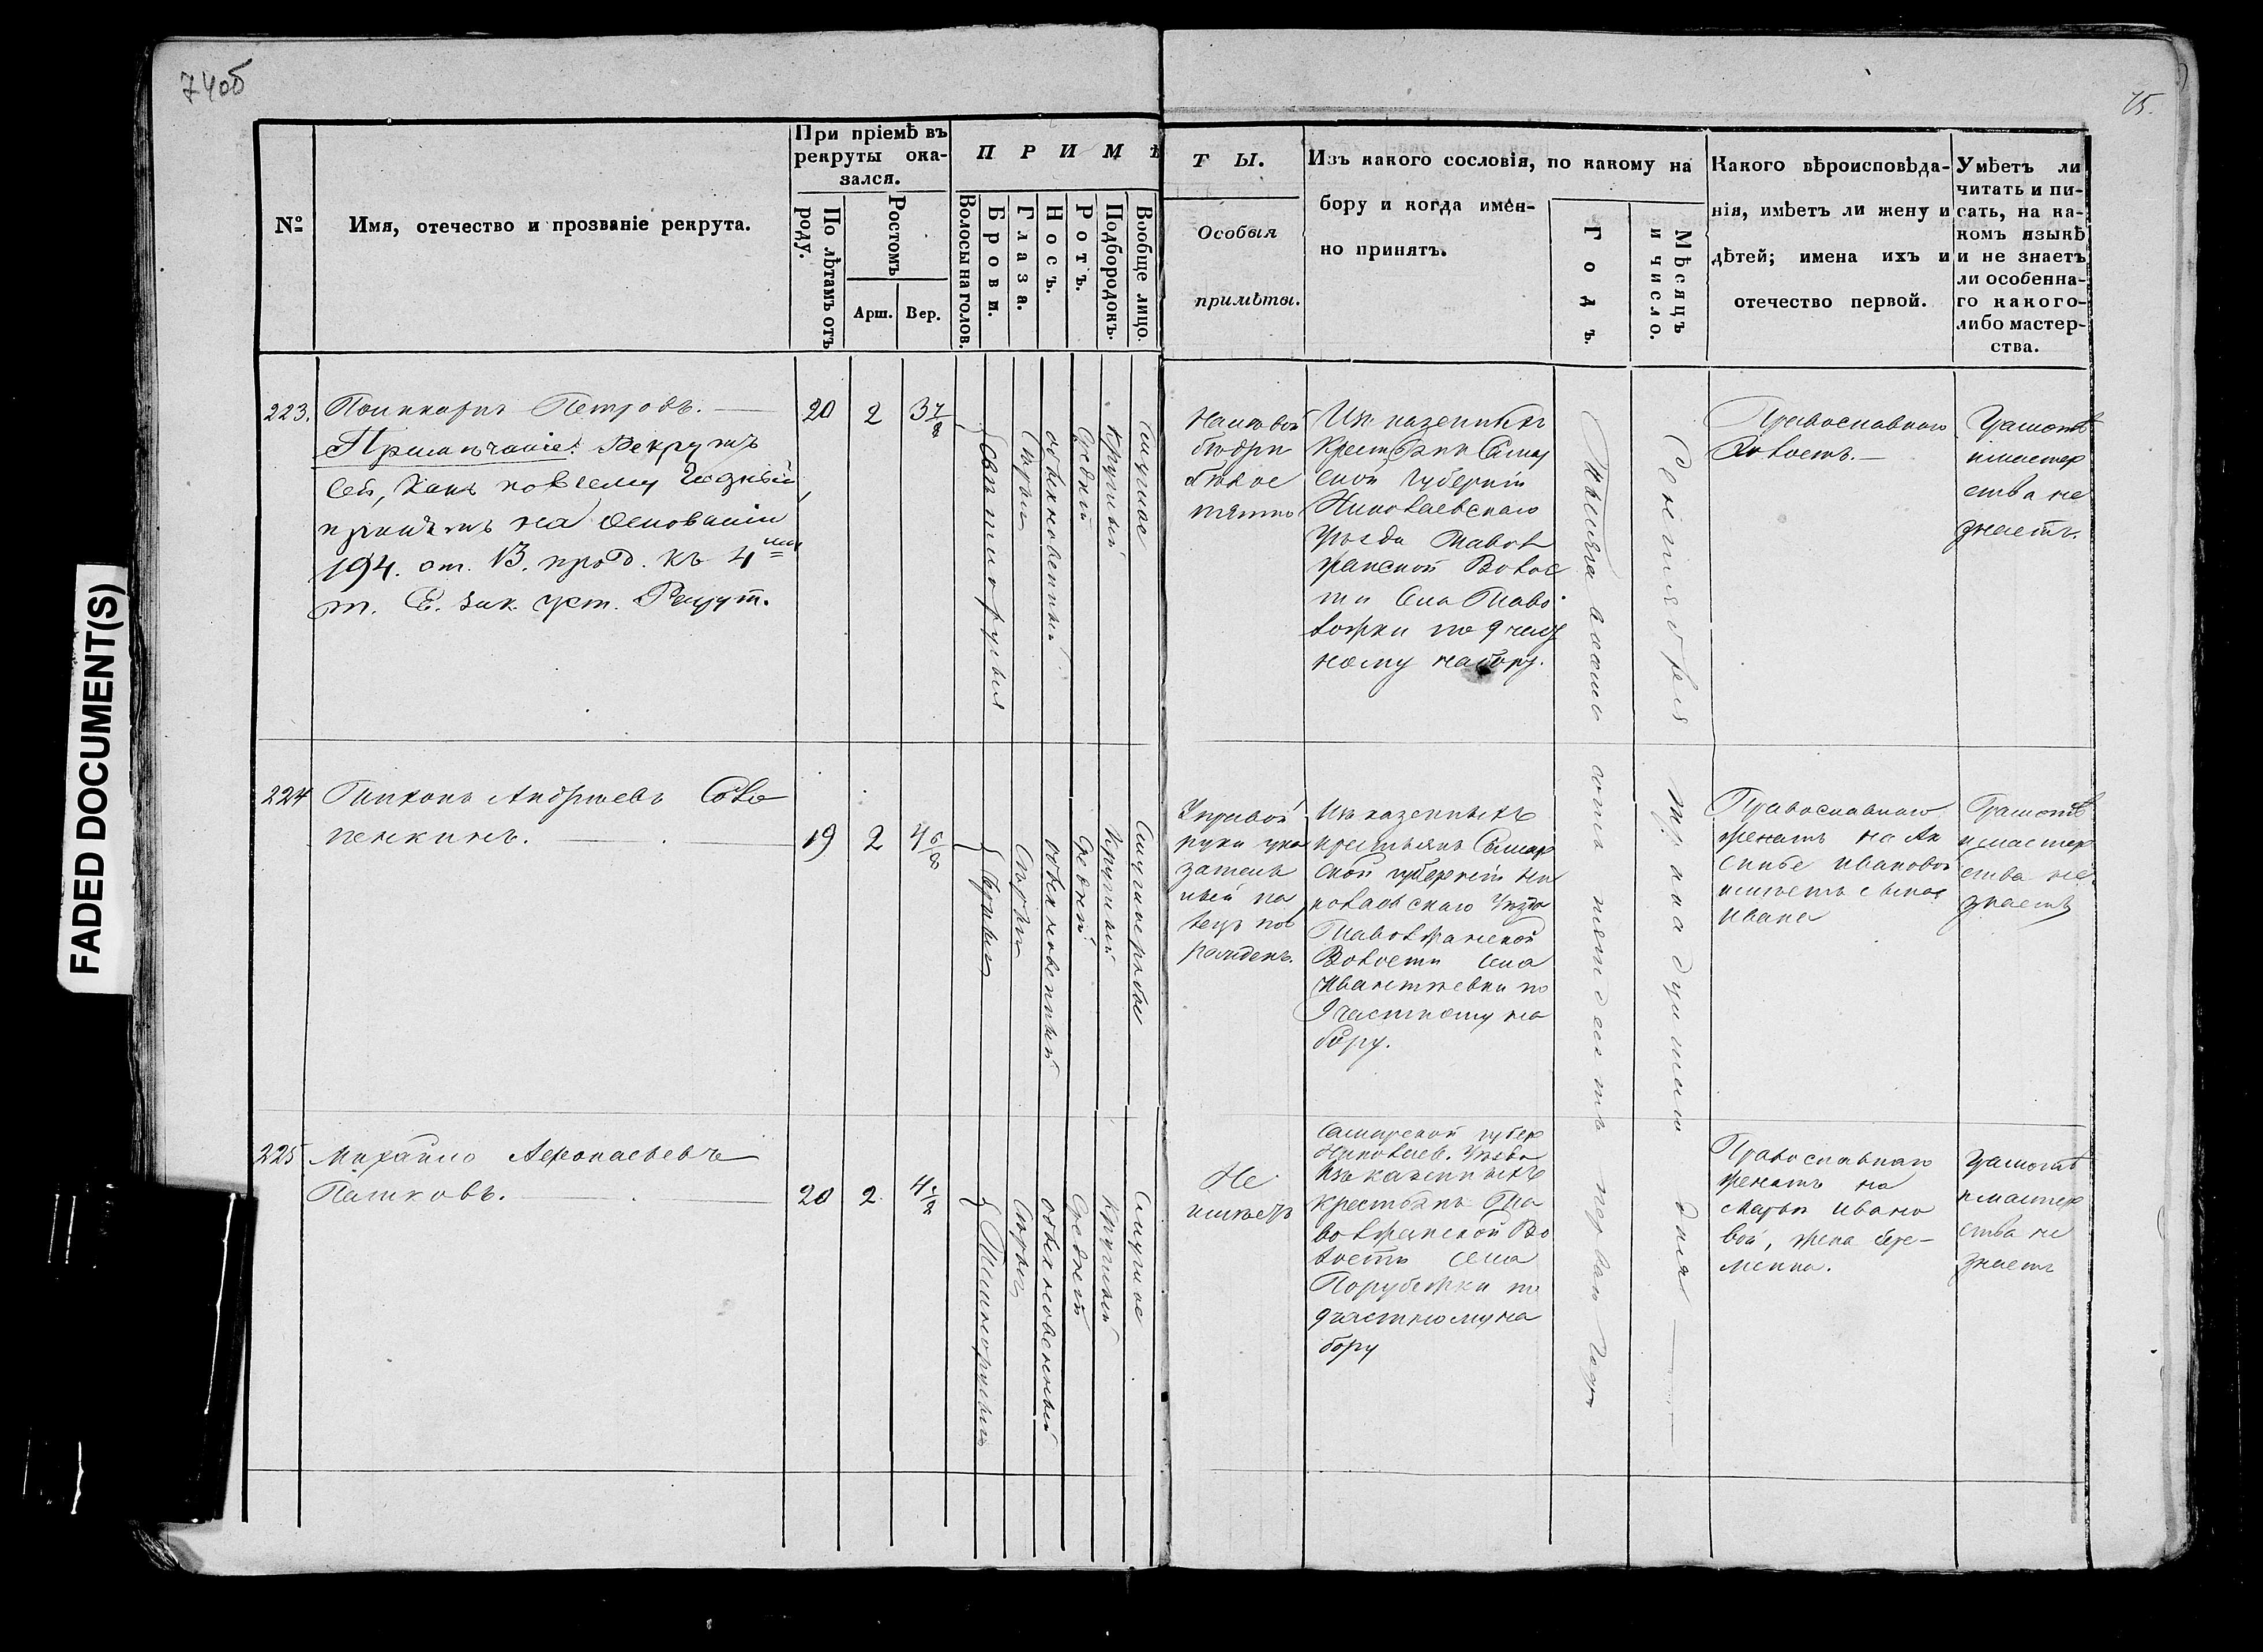 74об
75.
FADED DOCUMENT(S)
№
Имя, отечество и прозваніе рекрута.
При пріемѣ въ
рекруты ока-
зался.
По лѣтамъ отъ
роду.
Ростомъ
Арш.
Вер.
ПРИМѢ
Волосы на голов.
Брови.
Глаза.
Носъ.
Ротъ.
Подбородокъ.
Вообще лицо.
ТЫ.
Особыя
примѣты.
Изъ какого сословія, по какому на
бору и когда имен-
но принятъ.
Годъ.
Мѣсяцъ
и число.
Какого вѣроисповѣда-
нія, имѣетъ ли жену и
дѣтей; имена ихъ и
отечество первой.
Умѣетъ ли
читать и пи-
сать, на ка-
комъ языкѣ
и не знаетъ
ли особенна-
го какого-
либо мастер-
ства.
223.
Поликарпъ Петровъ.
Примѣчаніе: Рекрутъ
сей, какъ по всему годный,
принятъ на основаніи
194. ст. В. прод. къ 4
т. С. зак. уст. Рекрут.
20
2
3 7/8
Свѣтлорусыя
Сѣрыя
обыкновенный
Средній
Круглый
чистое
На лѣвой
бѣлое
пятно
Изъ казенныхъ
Крестьянъ Самар
ской Губерніи
Николаевскаго
Уѣзда Таволо
жанской Волос
ти Села Таво
ложки по 9 част
ному набору.
Тысяча восемь сотъ пятдесятъ перваго года
Сентября тринадцатаго дня
Православнаго
Холостъ.
Грамотѣ
и мастер
ства не
знаетъ.
224
Тихонъ Андреевъ Соло
пенкинъ.
19
2
4 6/8
Сѣрыя
обыкновенный
Средній
Круглый
У правой
руки ука
зательный па
лецъ пов
режденъ.
Изъ казенныхъ
крестьянъ Самар
ской губерніи Ни
колаевскаго Уѣзда
Таволжанской
Волости Села
Ивантѣевки по
9 частному на
бору.
Православнаго
женатъ на Ак
синьѣ Ивановой
имѣетъ сына
Ивана
Грамотѣ
и мастер
ства не
знаетъ
225
Михайло Афонасьевъ
Пашковъ.
20
2
4 1/2
Темнорусыя
Сѣрыя
обыкновенный
Средній
Круглый
Чистое
Не
имѣетъ
Самарской губер
Николаев. Уѣзда
Изъ казенныхъ
Крестьянъ Та
волжанской Во
лости Села
Порубежки по
9 частному на
бору
Православнаго
женатъ на
Марьи Ивано
вой, жена бере-
менна.
Грамотѣ
и мастер
ства не
знаетъ